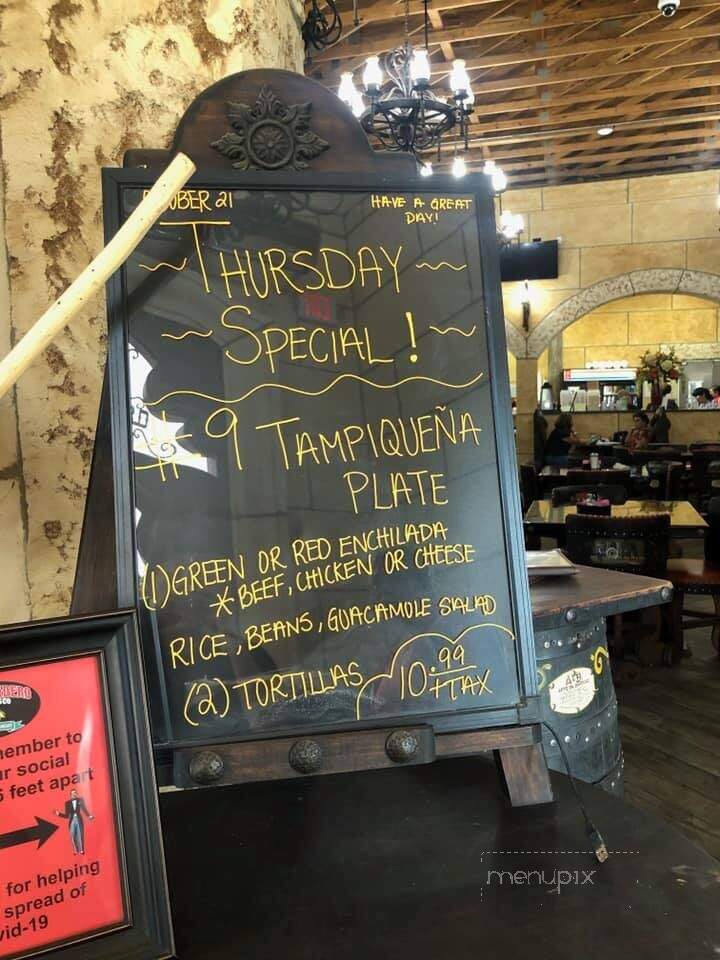 21
HAVE A GREAT
DAY!
THURSDAY
SPECIAL!
#9 TAMPIQUEÑA
PLATE
(1) GREEN OR RED ENCHILADA
* BEEF, CHICKEN OR CHEESE
RICE, BEANS, GUACAMOLE SALAD
(2) TORTILLAS 10.99
+TAX
member to
ur social
6 feet apart
for helping
spread of
vid-19
menupix